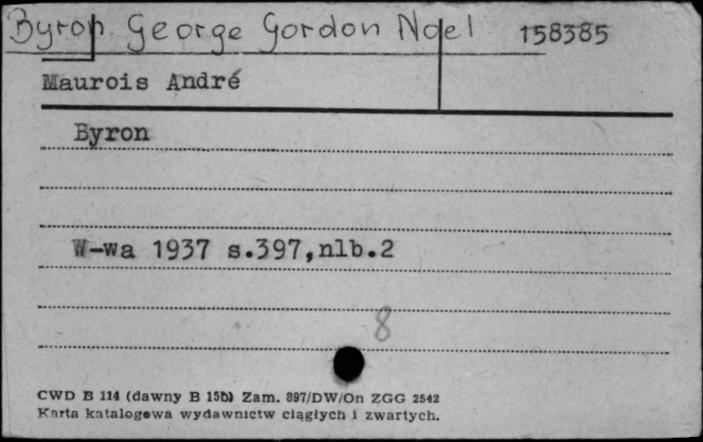 Byron George Gordon Noel 158385
Maurois André
Byron
W-wa 1937 s.397,nlb.2
8
CWD B 114 (dawny B 15b) Zam. 897/DW/On ZGG 2542
Karta katalogowa wydawnictw ciągłych i zwartych.